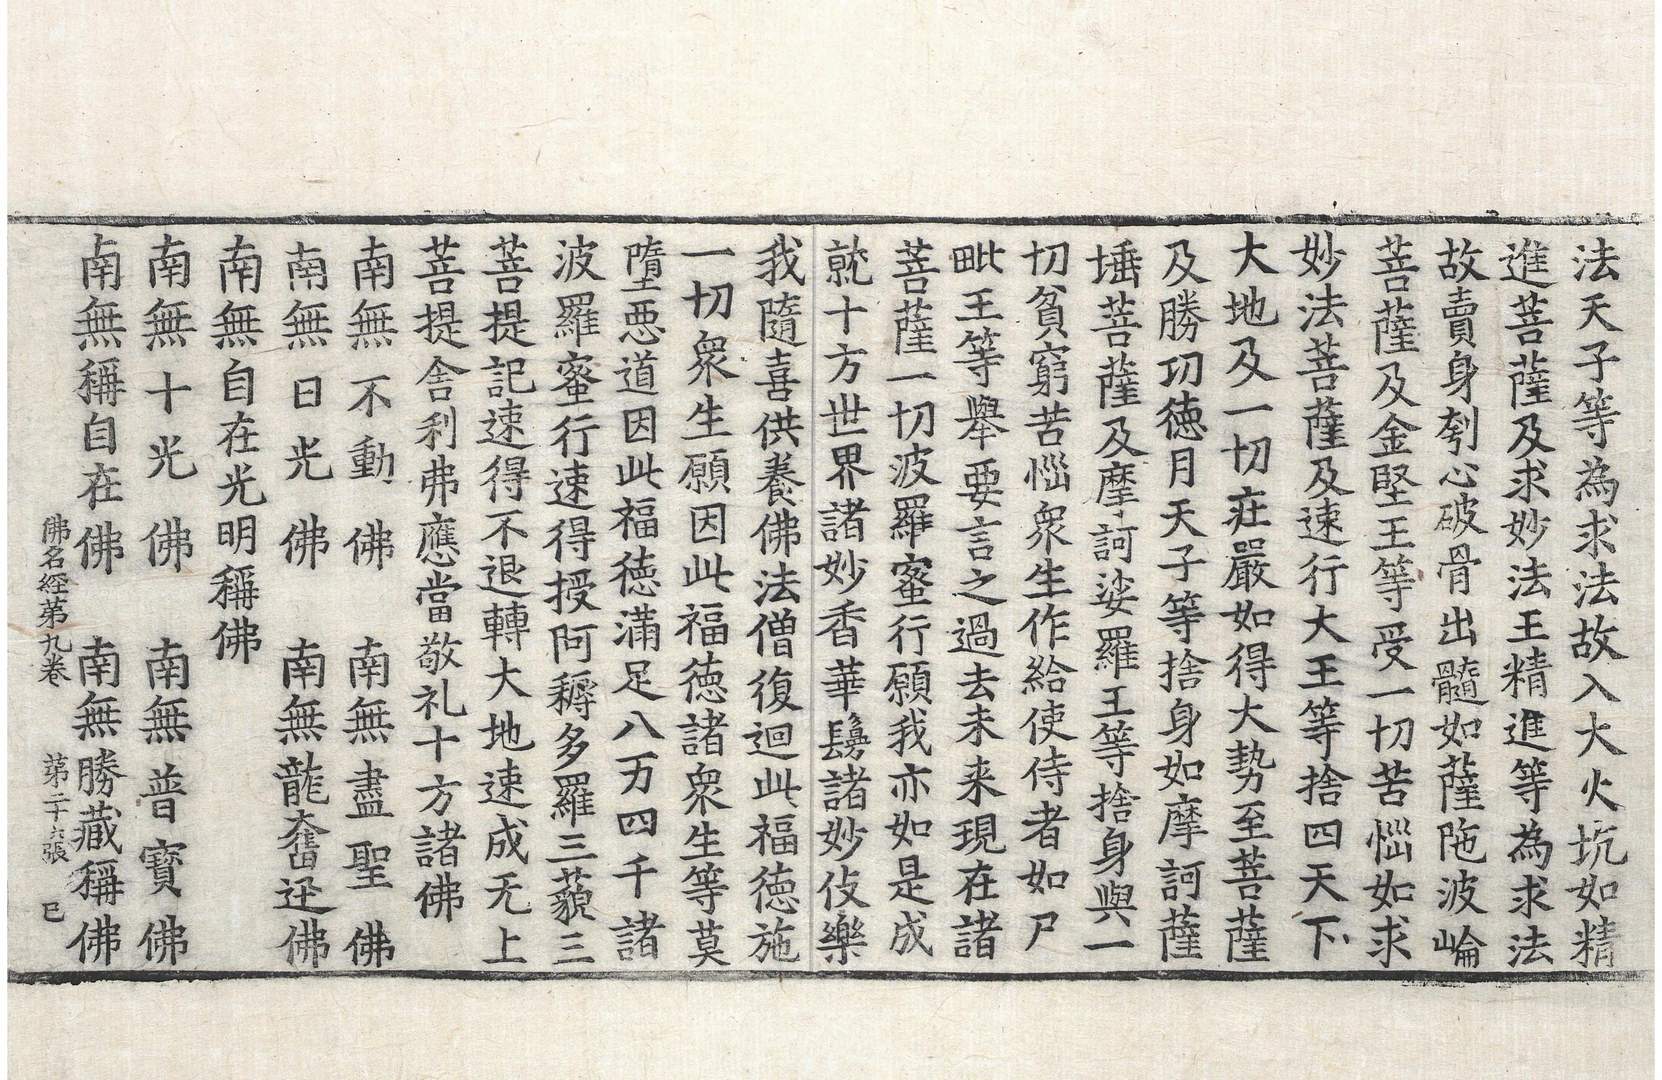 法天子等為求法故入大火坑如精
進菩薩及求妙法王精進等為求法
故賣身刳心破骨出髓如薩陁波崘
菩薩及金堅王等受一切苦惱如求
妙法菩薩及速行大王等捨四天下
大地及一切莊嚴如得大勢至菩薩
及勝功德月天子等捨身如摩訶薩
埵菩薩及摩訶娑羅王等捨身與一
切貧窮苦惱衆生作給使侍者如尸
毗王等舉要言之過去未来現在諸
菩薩一切波羅蜜行願我亦如是成
就十方世界諸妙香華鬘諸妙伎樂
我隨喜供養佛法僧復迴此福德施
一切衆生願因此福德諸衆生等莫
墮惡道因此福德滿足八万四千諸
波羅蜜行速得授阿耨多羅三藐三
菩提記速得不退轉大地速成无上
菩提舍利弗應當敬礼十方諸佛
南無不動佛　南無盡聖佛
南無日光佛　南無龍奮迅佛
南無自在光明稱佛
南無十光佛　南無普寶佛
南無稱自在佛　南無勝藏稱佛
佛名經第九卷　第二十六張　巳